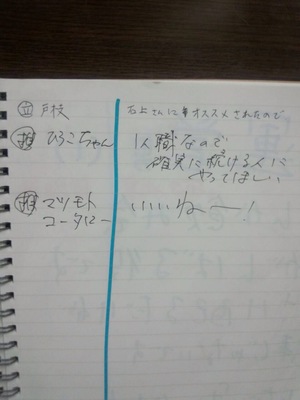 立 戸板 石上さんにオススメされたので
推 ひろこちゃん 1人職なので
確実に続ける人に
やってほしい
推 マツモト いいねー!
コータロー